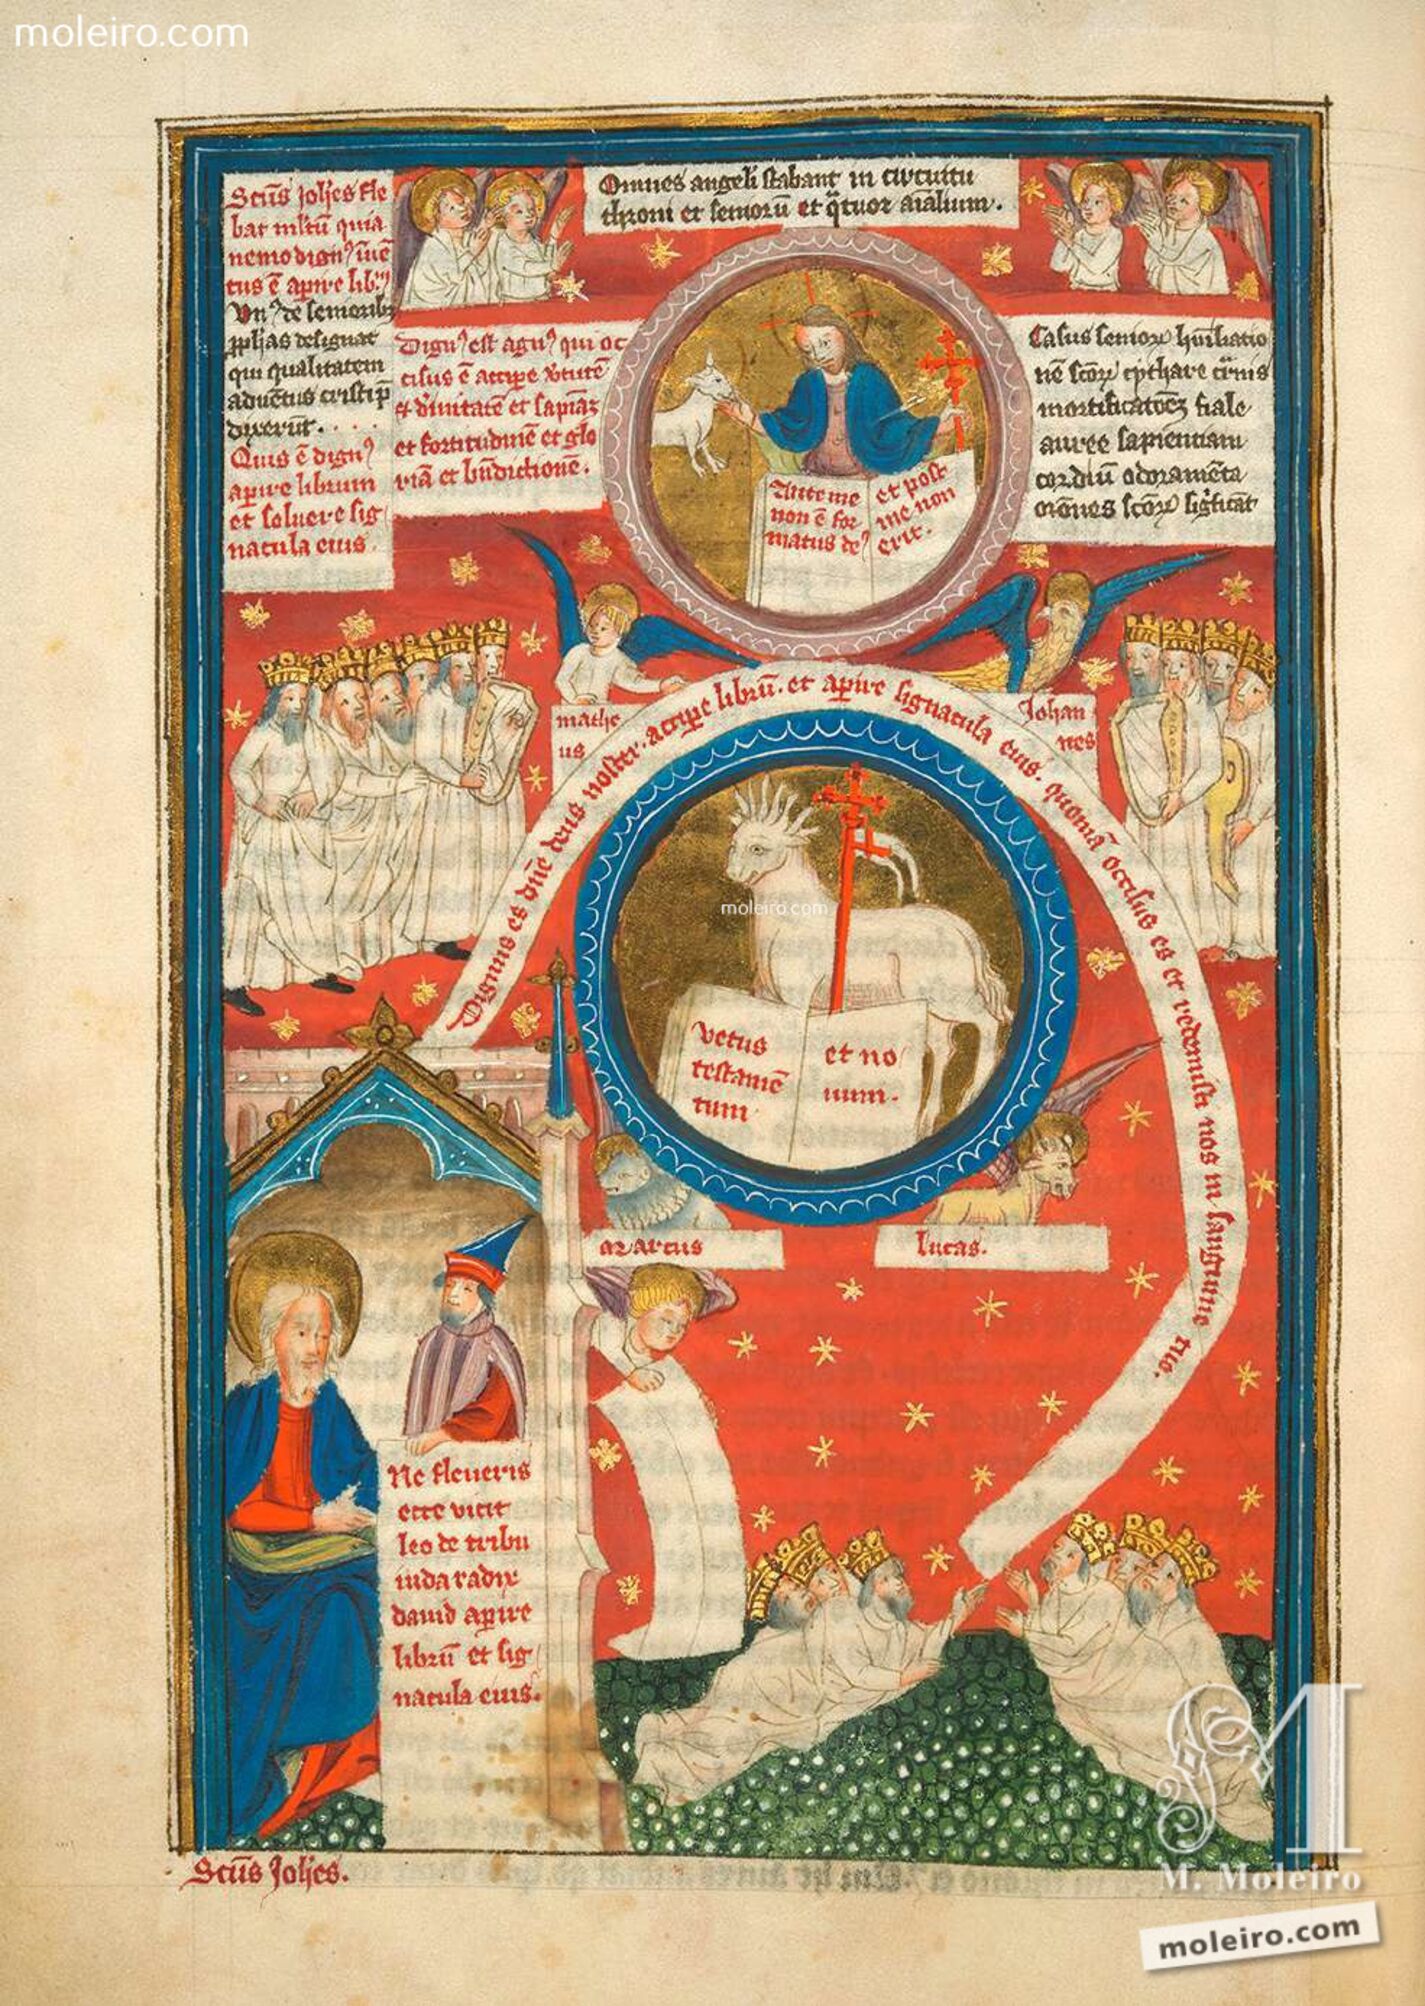 moleiro.com
Scūs Joħes fle
bat mltū quia
nemo dignꝰ inuē
tus ē apire lib
Vnꝰ de senioribꝫ
ꝓphās designat
qui qualitatem
aduentus cristi p̄
dixerūt.
Quis ē dignꝰ
apire librum
et soluere sig
nacula eius.
Omnes angeli stabant in circuitu
throni et seniorū et qͣtuor aīalium.
Dignꝰ est agnꝰ qui oc
cisus ē accipe v̄tutē
et diuinitatē et sapiāꝫ
et fortitudinē et glo
riā et bn̄dictionē.
Casus senioꝝ humiliatio
nē scōꝝ cythare carnis
mortificatōeꝫ fiale
auree sapientiam
cordiū odoramēta
orōnes scōꝝ sigficāt
Ante me
non ē for
matus deꝰ
et post
me non
erit.
mathe
us
Johan
nes
Dignus es dn̄e deus noster. accipe librū. et apire signacula eius. quoniā occisus es et redemisti nos in sanguine tuo.
vetus
testamē
tum
et no
uum.
moleiro.com
marcus
lucas.
Ne fleueris
ecce vicit
leo de tribu
iuda radix
dauid apire
librū et sig
nacula eius.
Scūs Joħes.
M
M. Moleiro
moleiro.com